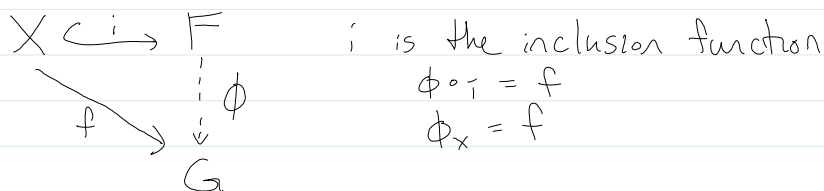 X i F i is the inclusion function
ϕ∘i = f
f ϕ ϕₓ = f
G